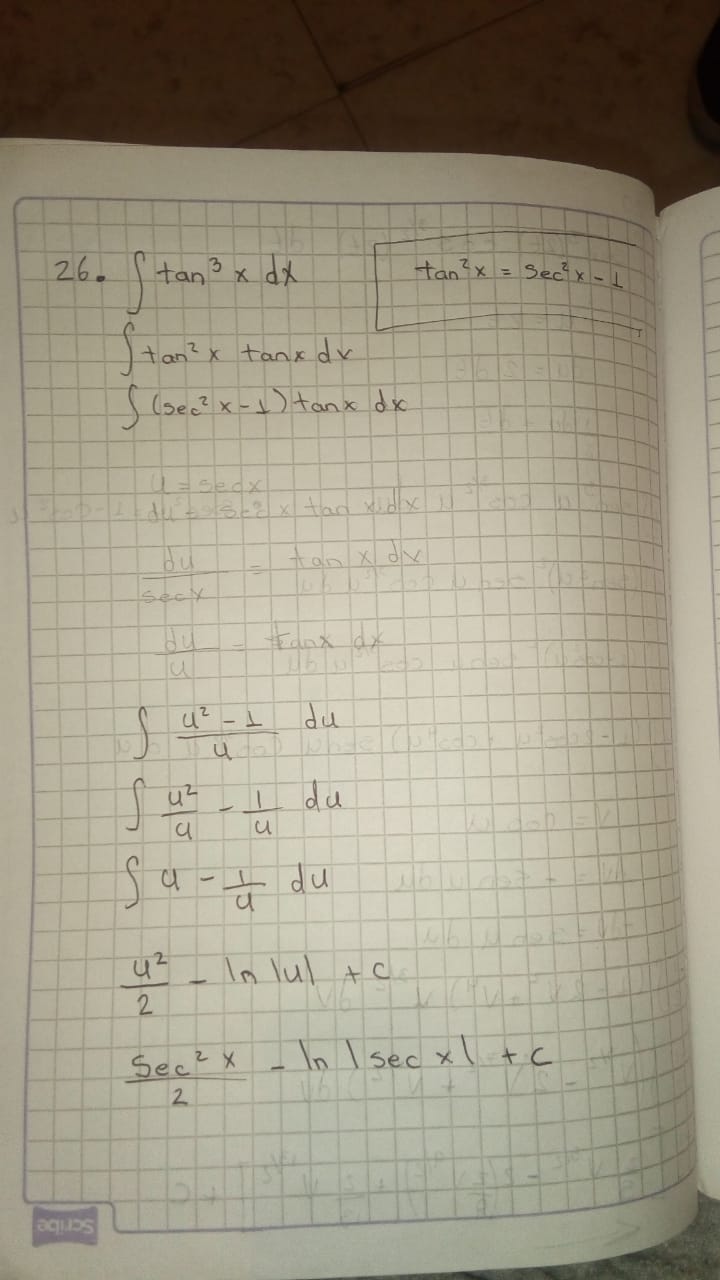 26. ∫ tan³ x dx
tan² x = Sec² x - 1
∫ tan² x tanx dx
∫ (sec² x - 1) tanx dx
u = secx
du = sec x tan x dx
du/secx = tan x dx
du/u = tanx dx
∫ u² - 1/u du
∫ u²/u - 1/u du
∫ u - 1/u du
u²/2 - ln |u| + c
Sec² x/2 - ln | sec x| + c
Scribe